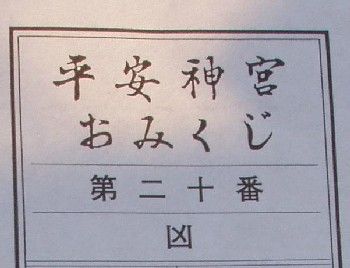 平安神宮
おみくじ
第二十番
凶